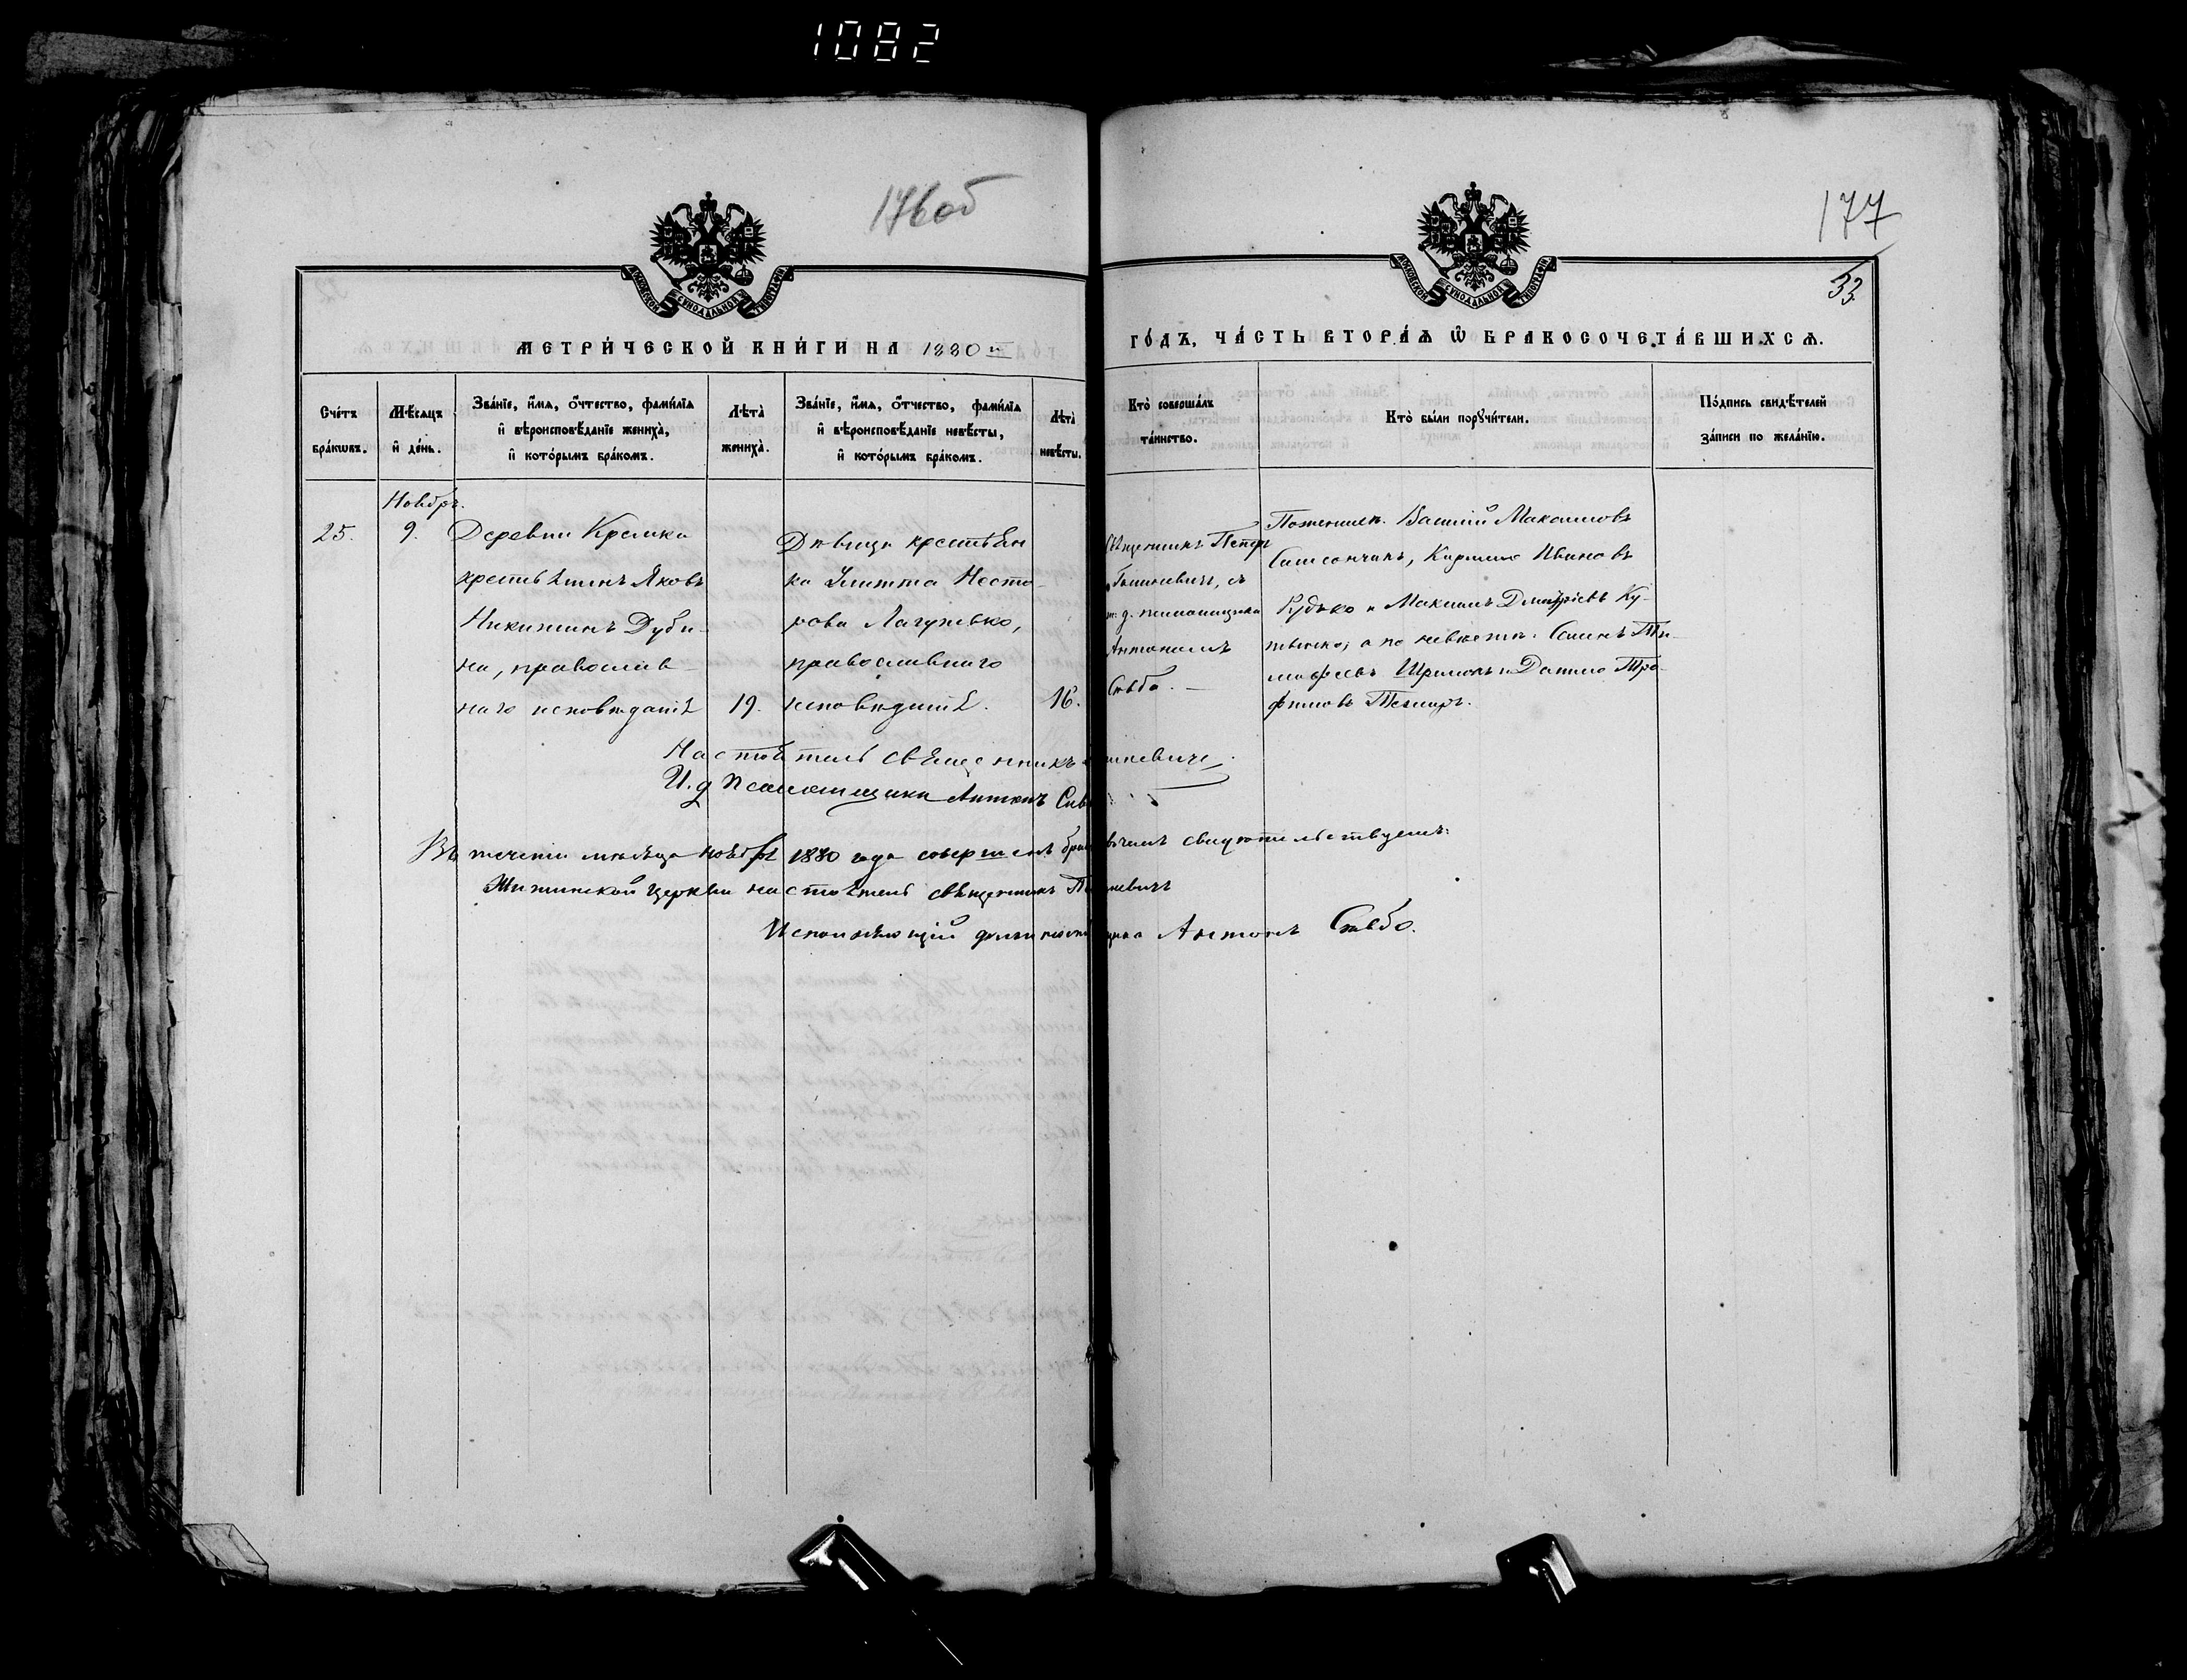 1082
176об
177
33.
МОСКОВСКОЙ СУНОДАЛЬНОЙ ТИПОГРАФІИ
МОСКОВСКОЙ СУНОДАЛЬНОЙ ТИПОГРАФІИ
МЕТРИ́ЧЕСКОЙ КНИ́ГИ НА 1880 й
ГО́ДЪ, ЧА́СТЬ ВТОРА́Я Ѡ БРАКОСОЧЕТА́ВШИХСЯ.
Сче́тъ
бра́кѡвъ.
Мѣ́сяцъ
и де́нь.
Зва́нїе, и́мя, о́тчество, фами́лїя
и вѣроисповѣ́данїе жениха̀,
и кото́рымъ бра́комъ.
Лѣта̀
жениха̀.
Зва́нїе, и́мя, о́тчество, фами́лїя
и вѣроисповѣ́данїе невѣ́сты,
и кото́рымъ бра́комъ.
Лѣта̀
невѣ́сты.
Кто̀ соверша́лъ
та́инство.
Кто̀ бы́ли порꙋчи́тели.
По́дпись свидѣ́телей
за́писи по жела́нїю.
Ноябрь.
25.
9.
Деревни Кремка
крестьянинъ Яковъ
Никитинъ Дуби-
на, православ-
наго исповѣданія
19.
Дѣвица крестьян
ка Улитта Несто-
рова Лагужевко,
православнаго
исповѣданія.
16.
Священникъ Петръ
съ
и. д. псаломщика
Антономъ
Сквбо. —
По женихѣ. Василій Максимовъ
Самсончикъ, Кирилло Ивановъ
Рудько и Максимъ Дмитріевъ Ку-
а по невѣстѣ. Семенъ Ти-
мофеевъ и Данило Тро-
фимовъ
Настоятель священникъ
И. д. Псаломщика Антонъ
Въ теченіи мѣсяца ноября 1880 года совершенъ свидѣтельствуемъ:
церкви настоятель священникъ
Исполняющій Антонъ Сквбо.